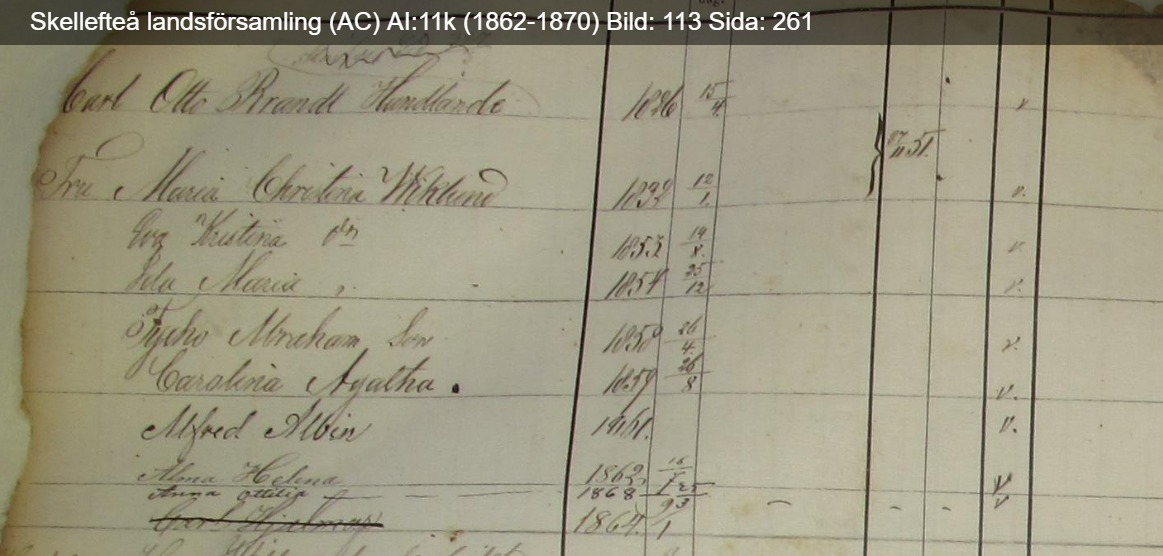 Skellefteå landsförsamling (AC) AI:11k (1862-1870) Bild: 113 Sida: 261
Carl Otto Brandt Handlande 1826 15/4 v
Fru Maria Christina Wiklund 1832 12/1 v.
Eva Kristina dr 1853 14/8 v
Ida Maria 1854 25/12 v.
Tycho Abraham Son 1858 26/4 v.
Carolina Agatha 1859 26/8 v.
Alfred Albin 1861. v.
Alma Helena 1862. v
Anna Ottilia 1868 v
Carl Hjalmar 1864.